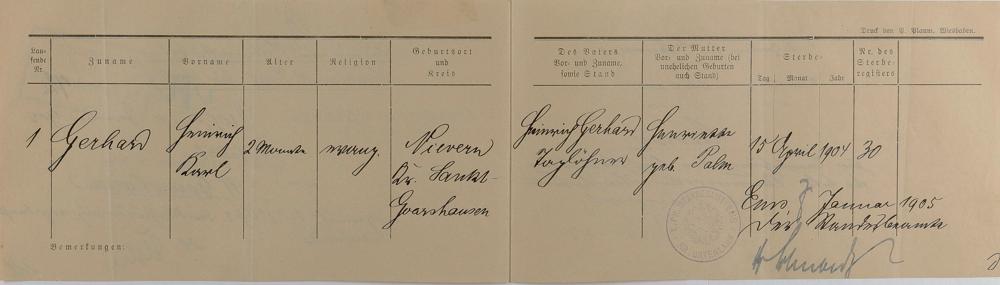 Druck von P. Plaum, Wiesbaden.
Lau-
fende
Nr.
Zuname
Vorname
Alter
Religion
Geburtsort
und
Kreis
Des Vaters
Vor- und Zuname,
sowie Stand
Der Mutter
Vor- und Zuname (bei
unehelichen Geburten
auch Stand)
Sterbe-
Tag Monat Jahr
Nr. des
Sterbe-
registers
1
Gerhard
Heinrich
Karl
2 Monate
evang.
Nievern
Kr. Sankt-
Goarshausen
Heinrich Gerhard
Taglöhner
Henriette
geb. Palm
15 April 1904
30
Ems, Januar 1905
Der Standesbeamte
Bemerkungen: